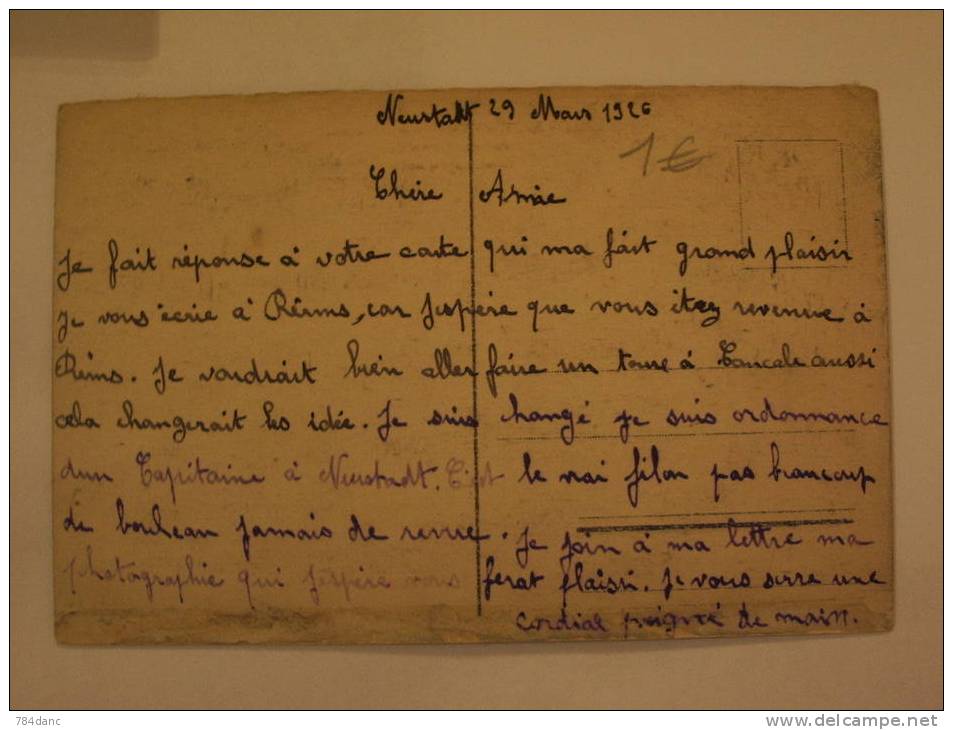 Neustadt 29 Mars 1926
1€
Chère Amie
Je fait réponse à votre carte qui ma fait grand plaisir
Je vous écrie à Reims, car Jespère que vous itez revenue à
Reims. Je voudrait bien aller faire un tour à Cancale aussi
cela changerait les idée. Je suis changé je suis ordonnance
dun Capitaine à Neustadt. C'est le vrai filon pas beaucoup
de bouleau jamais de revue. Je join à ma lettre ma
photographie qui jespère vous ferat plaisir. Je vous serre une
cordiale poigné de main.
784danc
www.delcampe.net